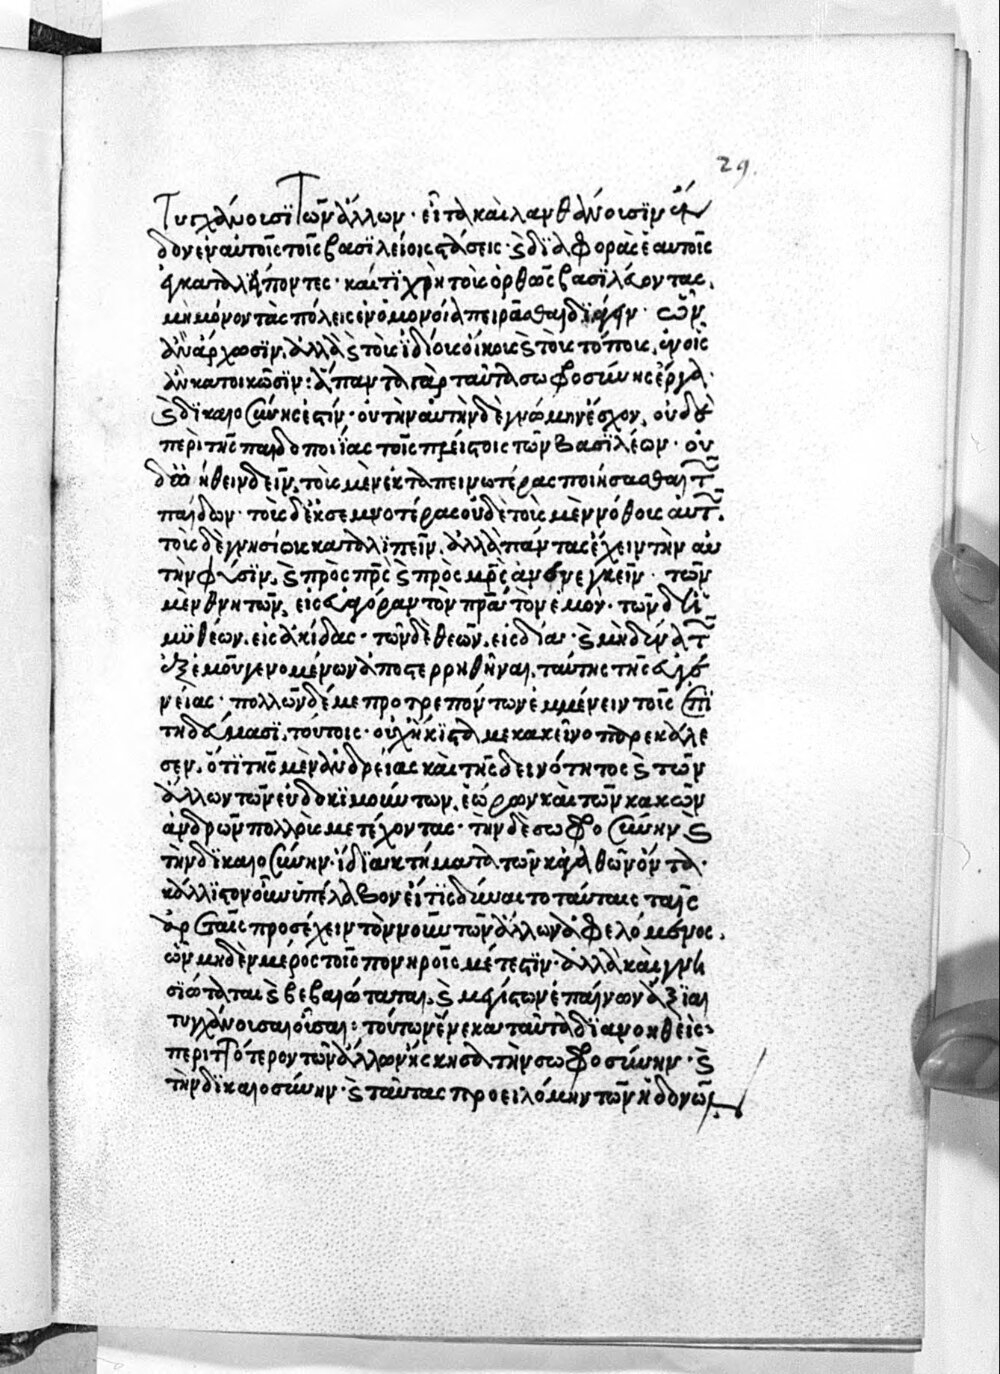 29.
τυγχάνουσι τῶν ἄλλων· εἶτα καὶ λανθάνουσιν ἔν
δον ἐν αὐτοῖς τοῖς βασιλείοις στάσεις· καὶ διαφορὰς ἑαυτοῖς
ἐγκαταλιπόντες· καί τι χρὴ τοὺς ὀρθῶς βασιλεύοντας,
μὴ μόνον τὰς πόλεις ἐν ὁμονοίᾳ πειρᾶσθαι διάγειν· ὧν
ἂν ἄρχωσιν, ἀλλὰ καὶ τοὺς ἰδίους οἴκους καὶ τοὺς τόπους, ἐν οἷς
ἂν κατοικῶσιν: ἅπαντα γὰρ ταῦτα σωφροσύνης ἔργα·
καὶ δικαιοσύνης ἐστίν· οὐ τὴν αὐτὴν δὲ γνώμην ἔσχον, οὐδὲ
περὶ τῆς παιδοποιίας τοῖς πλείστοις τῶν βασιλέων· οὐ
δὲ ᾠήθειν δεῖν, τοὺς μὲν ἐκ ταπεινωτέρας ποιήσασθαι τῶν
παίδων· τοὺς δ' ἐκ σεμνοτέρας οὐδὲ τοὺς μὲν νόθους αὐτῶν.
τοὺς δὲ γνησίους καταλιπεῖν, ἀλλὰ πάντας ἔχειν τὴν αὐ
τὴν φύσιν, καὶ πρὸς πρς καὶ πρὸς μρς ἀνενεγκεῖν· τῶν
μὲν θνητῶν, εἰς εὐαγόραν τὸν πρα τὸν ἐμὸν· τῶν δ' ἡ
μιθέων, εἰς αἰακίδας· τῶν δὲ θεῶν, εἰς δία· καὶ μηδένα τῶν
ἐξ ἐμοῦ γενομένων ἀποστερηθῆναι, ταύτης τῆς εὐγε
νείας· πολλῶν δέ με προτρεπόντων ἐμμένειν τοῖς ἐπι
τηδεύμασι, τούτοις· οὐχ ἥκιστά με κἀκεῖνο παρεκάλε
σεν, ὅτι τῆς μὲν ἀνδρείας καὶ τῆς δεινότητος καὶ τῶν
ἄλλων τῶν εὐδοκιμούντων, ἑώρων καὶ τῶν κακῶν
ἀνδρῶν πολλοὺς μετέχοντας· τὴν δὲ σωφροσύνην καὶ
τὴν δικαιοσύνην, ἴδια κτήματα τῶν κἀγαθῶν ὄντα·
κάλλιστον οὖν ὑπέλαβον εἴ τις δύναιτο ταύταις ταῖς
ἀρεταῖς προσέχειν τὸν νοῦν τῶν ἄλλων ἀφελόμενος,
ὧν μηδὲν μέρος τοῖς πονηροῖς μέτεστιν· ἀλλὰ καὶ γνη
σιώταται καὶ βεβαιώταται, καὶ μεγίστων ἐπαίνων ἄξιαι
τυγχάνουσαι οὖσαι: τούτων ἕνεκα ταῦτα διανοηθεὶς
περιττότερον τῶν ἄλλων ἤσκησα τὴν σωφροσύνην· καὶ
τὴν δικαιοσύνην· καὶ ταύτας προειλόμην τῶν ἡδονῶν